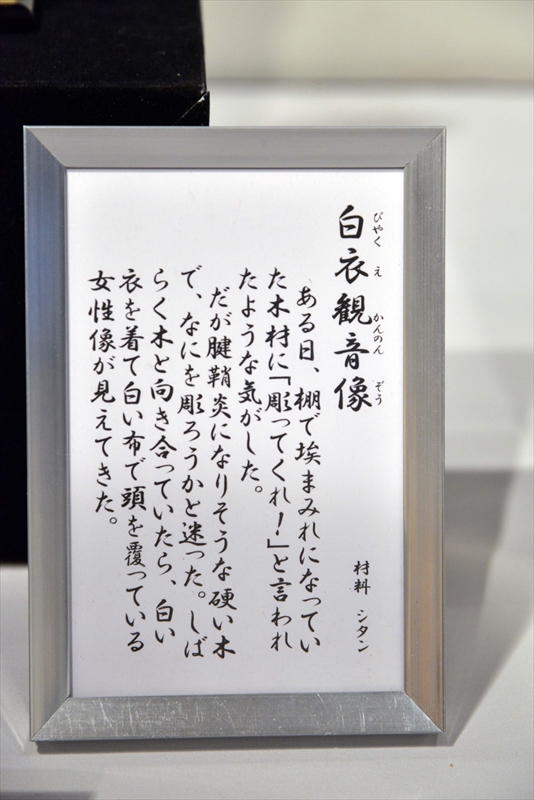 白衣観音像
びやく え かんのん ぞう
材料 シタン
ある日、棚で埃まみれになってい
た木村に「彫ってくれ！」と言われ
たような気がした。
だが腱鞘炎になりそうな硬い木
で、なにを彫ろうかと迷った。しば
らく木と向き合っていたら、白い
衣を着て白い布で頭を覆っている
女性像が見えてきた。